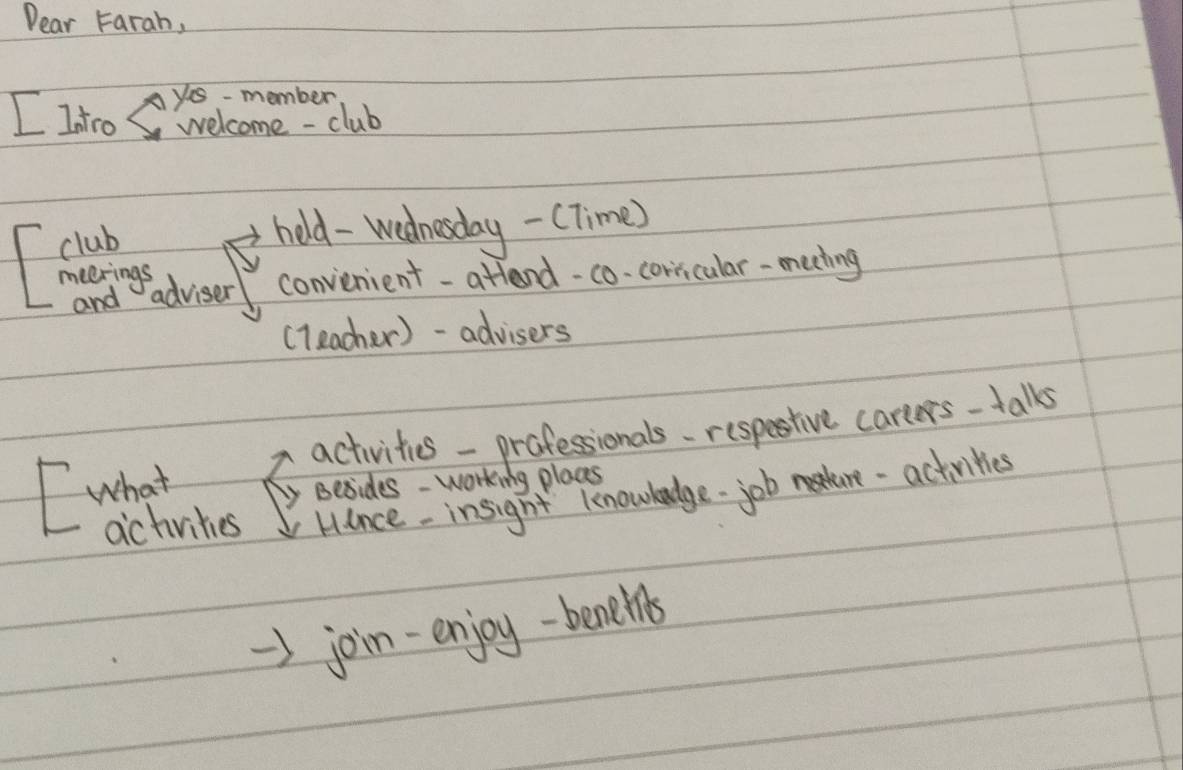 Dear Farah,
[ Intro Yes - member
Welcome - club
[ club meetings and adviser
held - Wednesday - (Time)
convenient - attend - co-corricular - meeting
(Teacher) - advisers
[ What activities
activities - professionals - respestive careers - talks
Besides - working places
Hence - insight knowladge - job nature - activities
→ join - enjoy - benefits